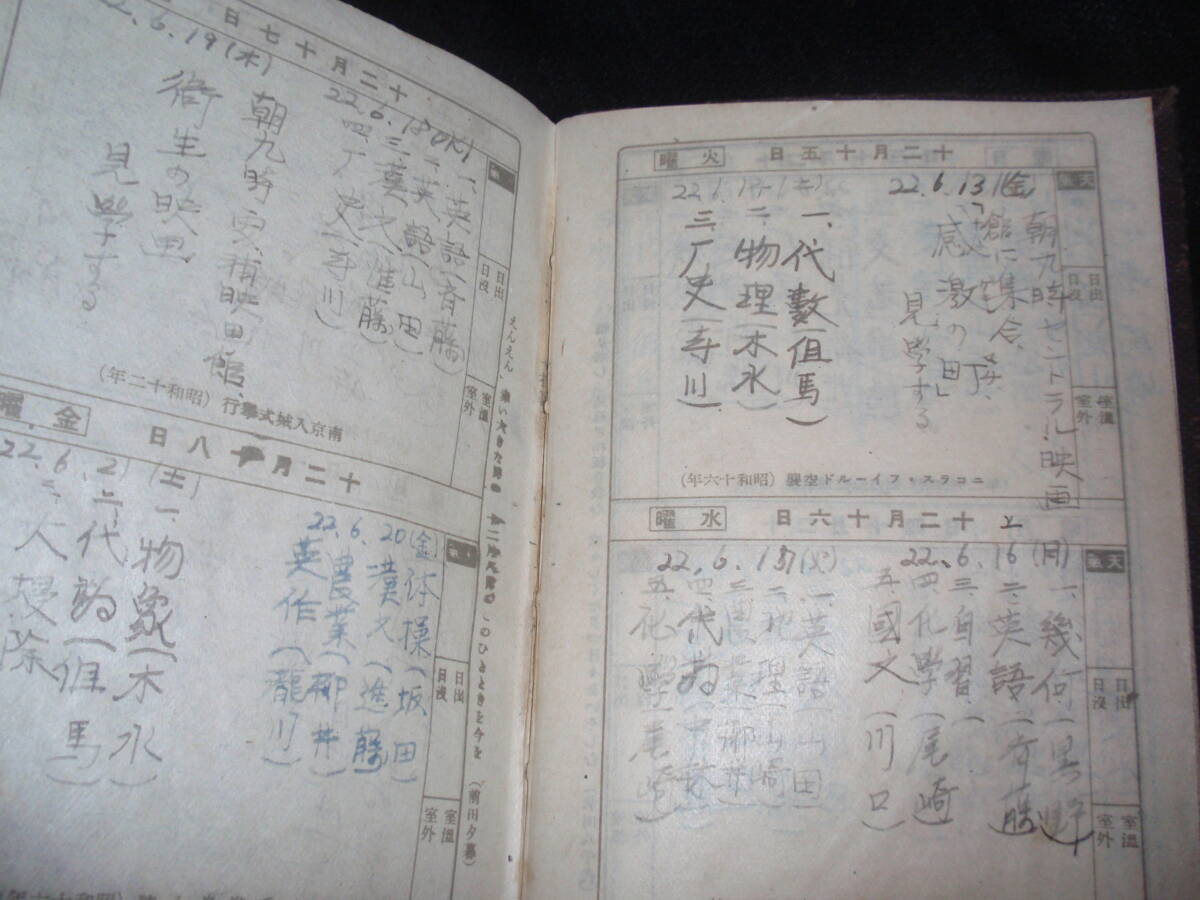 十二月十五日
火曜
天氣
日出
日沒
室温
室外
22.6.13(金)
朝九時セントラル映画
館に集合、
「感激の町」
見学する
一、代数(但馬)
二、物理(木水)
三、厂史(寺川)
ニコラス・フイールド空襲(昭和十六年)
十二月十六日
水曜
天氣
日出
日沒
室温
室外
22.6.16(月)
一、幾何(黒野)
二、英語(斉藤)
三、自習、(
四、化學(尾崎)
五、國文(川口)
一、英語(山田)
二、地理(山崎)
三、農業(柳井)
五、化學(尾崎)
十二月十七日
日出
日沒
室温
室外
一、英語(斉藤)
二、英語(山田)
三、漢文(進藤)
四、厂史(寺川)
22.6.19(木)
朝九時
映画館、
衛生の映画
見學する
南京入城式擧行(昭和十二年)
十二月十八日
金曜
日出
日沒
室温
室外
22.6.20(金)
体操(坂田)
漢文(進藤)
農業(柳井)
英作(瀧川)
22.6.21(土)
一、物象(木水)
二、代数(但馬)
三、大掃除
のひとときを今を(前田夕暮)